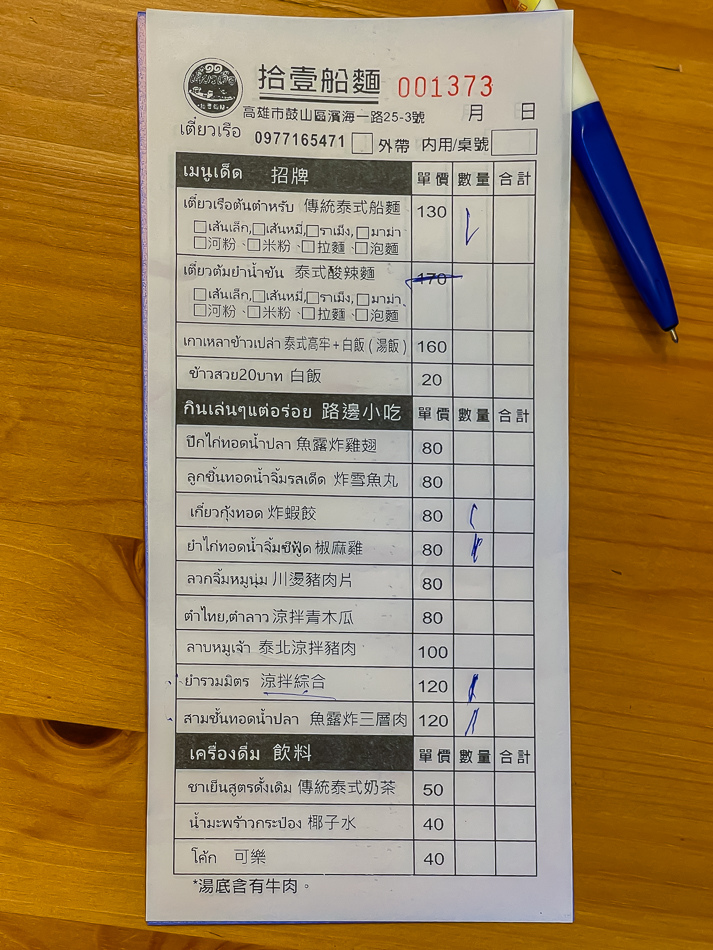 拾壹船麵 001373
高雄市鼓山區濱海一路25-3號 月 日
เตี๋ยวเรือ 0977165471 外帶 內用/桌號
เมนูเด็ด 招牌 單價 數量 合計
เตี๋ยวเรือต้นตำหรับ 傳統泰式船麵 130
เส้นเล็ก, เส้นหมี่, ราเม็ง, มาม่า
河粉、米粉、拉麵、泡麵
เตี๋ยวต้มยำน้ำข้น 泰式酸辣麵 170
เส้นเล็ก, เส้นหมี่, ราเม็ง, มาม่า
河粉、米粉、拉麵、泡麵
เกาเหลาข้าวเปล่า 泰式高牢+白飯(湯飯) 160
ข้าวสวย20บาท 白飯 20
กินเล่นๆแต่อร่อย 路邊小吃 單價 數量 合計
ปีกไก่ทอดน้ำปลา 魚露炸雞翅 80
ลูกชิ้นทอดน้ำจิ้มรสเด็ด 炸雪魚丸 80
เกี่ยวกุ้งทอด 炸蝦餃 80
ยำไก่ทอดน้ำจิ้มซีฟู้ด 椒麻雞 80
ลวกจิ้มหมูนุ่ม 川燙豬肉片 80
ตำไทย,ตำลาว 涼拌青木瓜 80
ลาบหมูเจ้า 泰北涼拌豬肉 100
ยำรวมมิตร 涼拌綜合 120
สามชั้นทอดน้ำปลา 魚露炸三層肉 120
เครื่องดื่ม 飲料 單價 數量 合計
ชาเย็นสูตรดั้งเดิม 傳統泰式奶茶 50
น้ำมะพร้าวกระป๋อง 椰子水 40
โค้ก 可樂 40
*湯底含有牛肉。